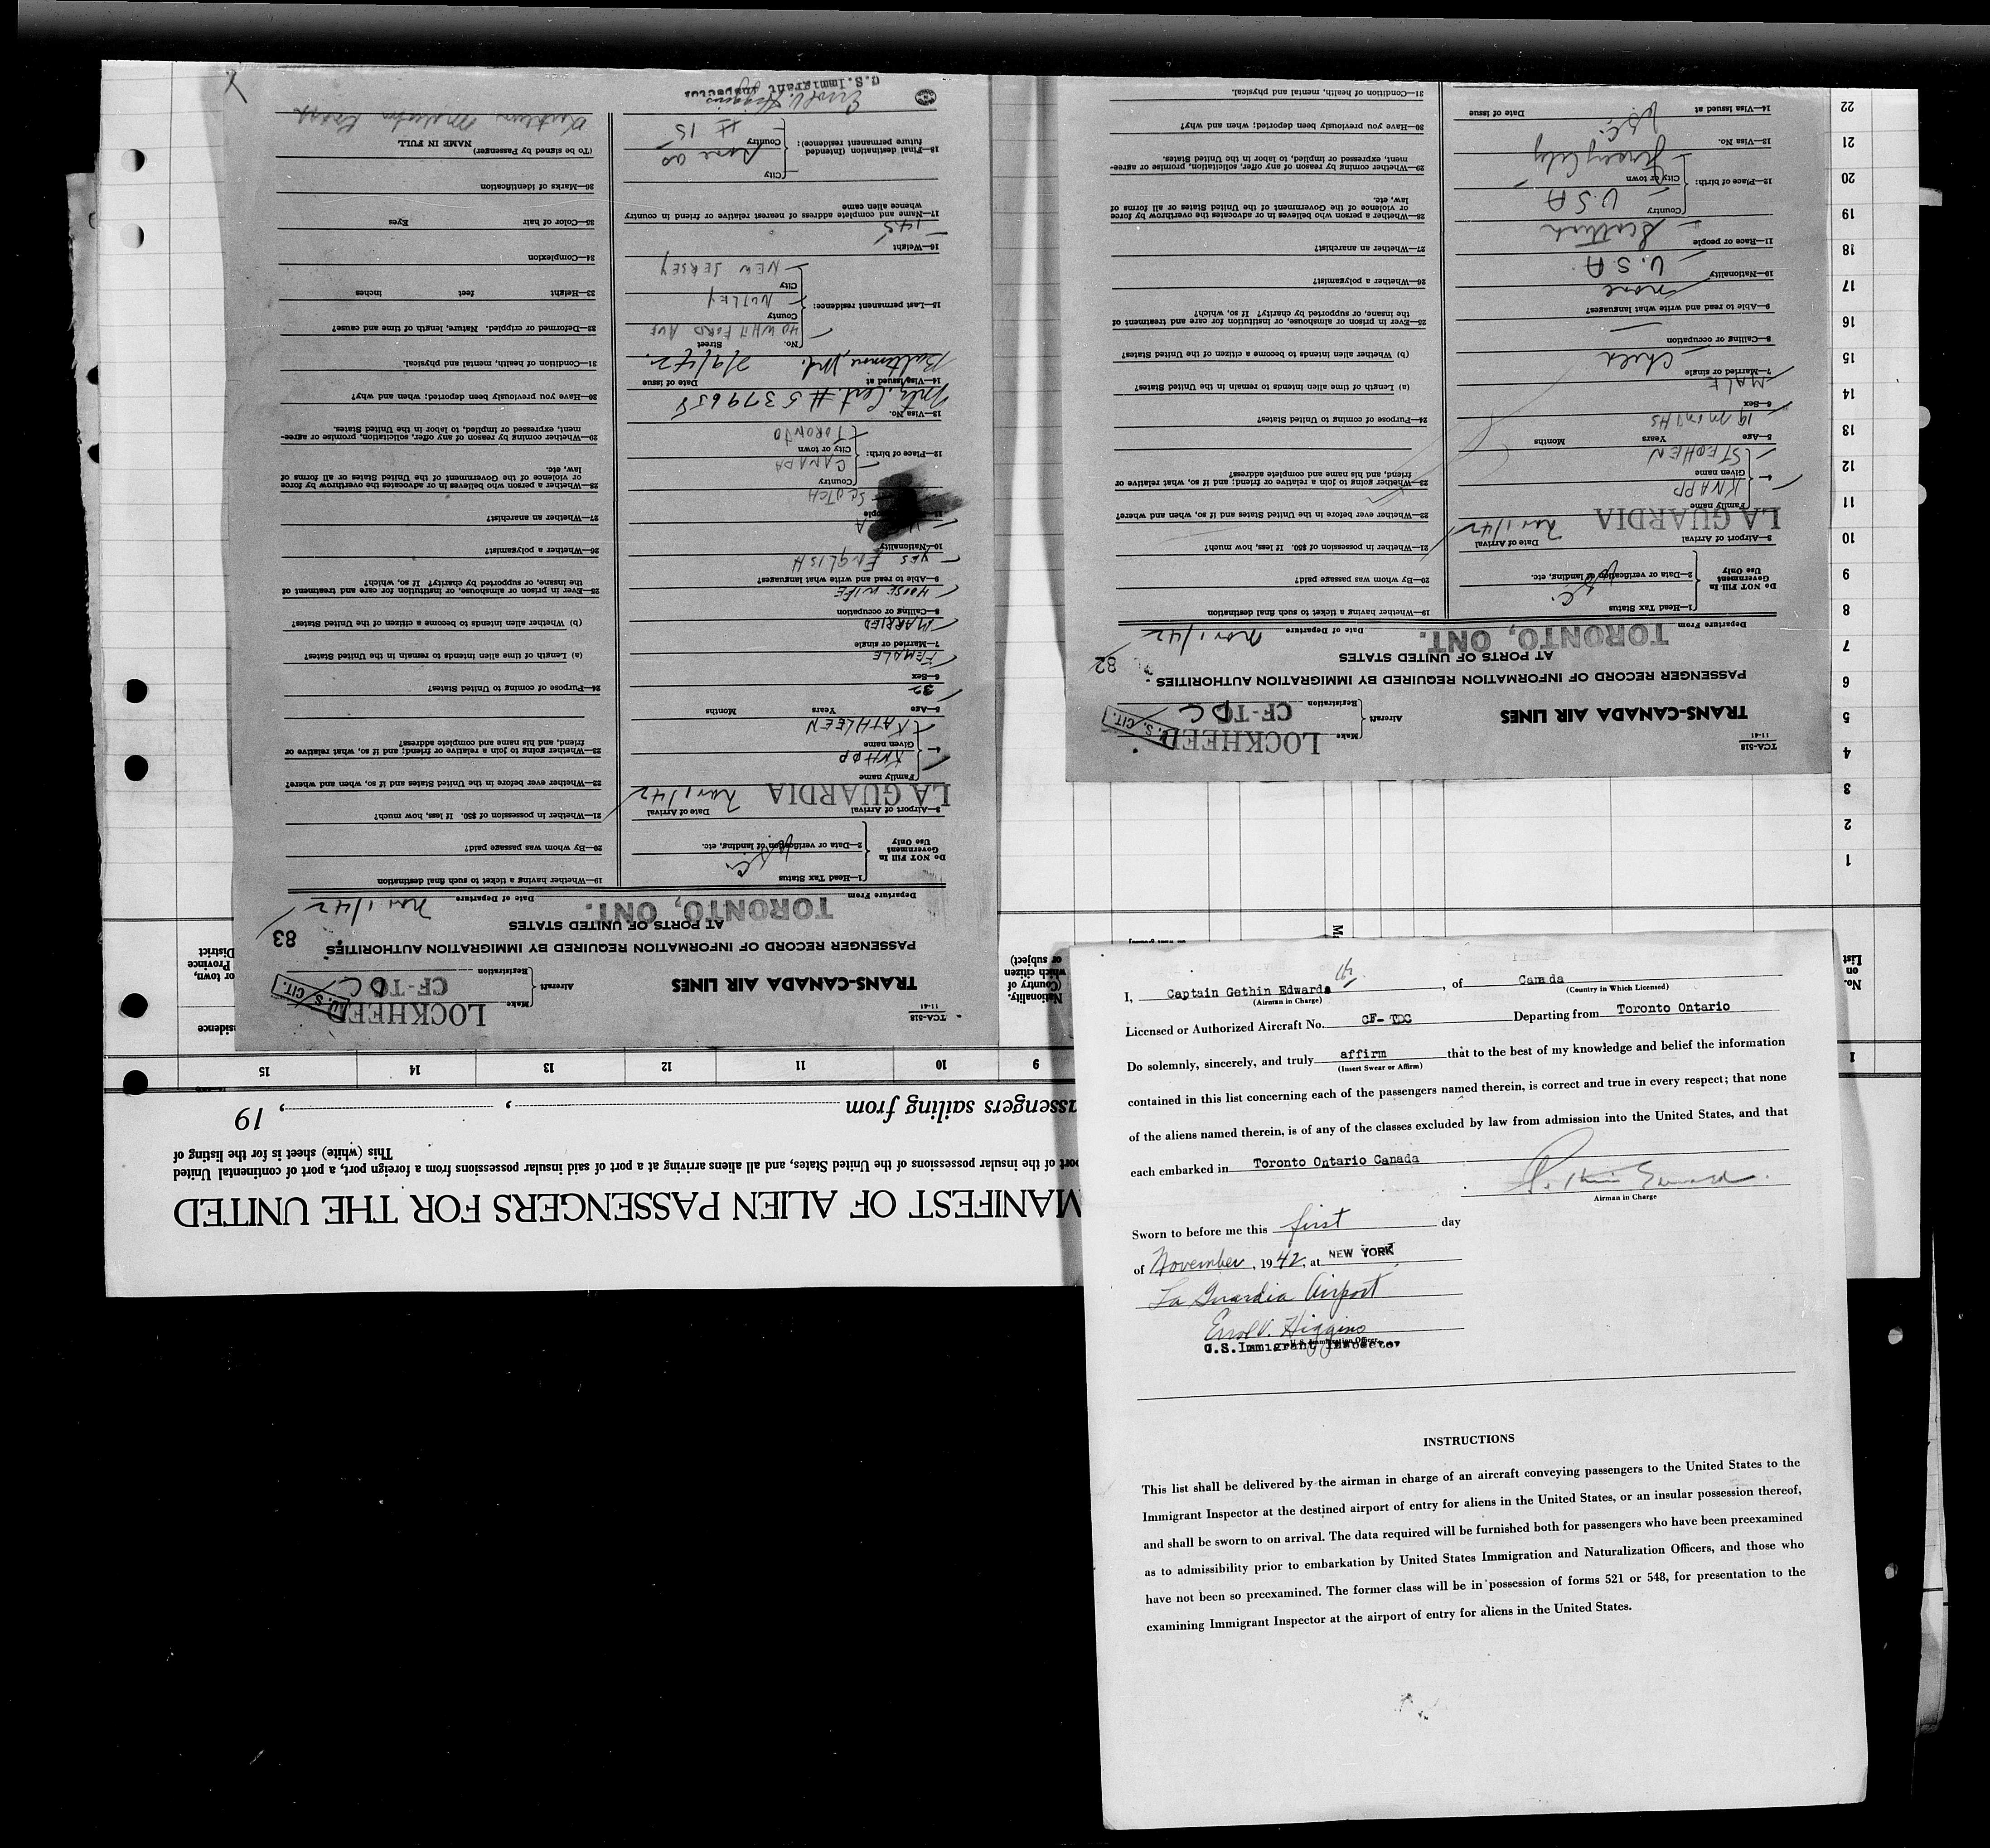 I, Captain Gethin Edwards, of Canada
(Airman in Charge) (Country in Which Licensed)
Licensed or Authorized Aircraft No. CF-TDC Departing from Toronto Ontario
Do solemnly, sincerely, and truly affirm that to the best of my knowledge and belief the information
(Insert Swear or Affirm)
contained in this list concerning each of the passengers named therein, is correct and true in every respect; that none
of the aliens named therein, is of any of the classes excluded by law from admission into the United States, and that
each embarked in Toronto Ontario Canada
Airman in Charge
Sworn to before me this first day
of November, 1942, at NEW YORK
La Guardia Airport
Errol V. Higgins
U.S. Immigrant Inspector
INSTRUCTIONS
This list shall be delivered by the airman in charge of an aircraft conveying passengers to the United States to the
Immigrant Inspector at the destined airport of entry for aliens in the United States, or an insular possession thereof,
and shall be sworn to on arrival. The data required will be furnished both for passengers who have been preexamined
as to admissibility prior to embarkation by United States Immigration and Naturalization Officers, and those who
have not been so preexamined. The former class will be in possession of forms 521 or 548, for presentation to the
examining Immigrant Inspector at the airport of entry for aliens in the United States.
MANIFEST OF ALIEN PASSENGERS FOR THE UNITED
port of the insular possessions of the United States, and all aliens arriving at a port of said insular possessions from a foreign port, a port of continental United
This (white) sheet is for the listing of
assengers sailing from , , 19
1 9 10 11 12 13 14 15
No. on List
Nationality. (Country of which citizen or subject)
sidence
or town, Province District
1
2
3
4
5
6
7
8
9
10
11
12
13
14
15
16
17
18
19
20
21
22
TCA-518
11-41
TRANS-CANADA AIR LINES
Aircraft Make LOCKHEED
Registration CF-TDC
U.S. CIT.
PASSENGER RECORD OF INFORMATION REQUIRED BY IMMIGRATION AUTHORITIES
AT PORTS OF UNITED STATES
82
Departure From TORONTO, ONT. Date of Departure Nov 1/42
DO NOT Fill In Government Use Only
1—Head Tax Status
2—Data or verification of landing, etc.
3—Airport of Arrival LA GUARDIA Date of Arrival Nov 1/42
4— Family name KNAPP
Given name STEPHEN
5—Age Years Months 19 MONTHS
6—Sex MALE
7—Married or single Child
8—Calling or occupation
9—Able to read and write what languages? none
10—Nationality U.S.A
11—Race or people Scottish
12—Place of birth: Country U.S.A
City or town Jersey City
13—Visa No.
14—Visa Issued at Date of Issue
19—Whether having a ticket to such final destination
20—By whom was passage paid?
21—Whether in possession of $50. If less, how much?
22—Whether ever before in the United States and if so, when and where?
23—Whether going to join a relative or friend; and if so, what relative or
friend, and his name and complete address?
24—Purpose of coming to United States?
(a) Length of time alien intends to remain in the United States?
(b) Whether alien intends to become a citizen of the United States?
25—Ever in prison or almshouse, or institution for care and treatment of
the insane, or supported by charity? If so, which?
26—Whether a polygamist?
27—Whether an anarchist?
28—Whether a person who believes in or advocates the overthrow by force
or violence of the Government of the United States or all forms of
law, etc.
29—Whether coming by reason of any offer, solicitation, promise or agree-
ment, expressed or implied, to labor in the United States.
30—Have you previously been deported; when and why?
31—Condition of health, mental and physical.
TCA-518
11-41
TRANS-CANADA AIR LINES
Aircraft Make LOCKHEED
Registration CF-TDC
U.S. CIT.
PASSENGER RECORD OF INFORMATION REQUIRED BY IMMIGRATION AUTHORITIES
AT PORTS OF UNITED STATES
83
Departure From TORONTO, ONT. Date of Departure Nov 1/42
DO NOT Fill In Government Use Only
1—Head Tax Status
2—Data or verification of landing, etc.
3—Airport of Arrival LA GUARDIA Date of Arrival Nov 1/42
4— Family name KNAPP
Given name KATHLEEN
5—Age Years Months 32
6—Sex FEMALE
7—Married or single MARRIED
8—Calling or occupation HOUSEWIFE
9—Able to read and write what languages? YES ENGLISH
10—Nationality
people SCOTCH
12—Place of birth: Country CANADA
City or town TORONTO
13—Visa No. Ntz. Cert # 5379658
14—Visa Issued at Baltimore, Md. Date of Issue 2/9/42
15—Last permanent residence: No. Street 40 WHITFORD AVE
County NUTLEY
City NEW JERSEY
16—Weight 145
17—Name and complete address of nearest relative or friend in country
whence alien came
18—Final destination (Intended future permanent residence): City Same as
Country # 15
Errol V. Higgins
U.S. Immigrant Inspector
19—Whether having a ticket to such final destination
20—By whom was passage paid?
21—Whether in possession of $50. If less, how much?
22—Whether ever before in the United States and if so, when and where?
23—Whether going to join a relative or friend; and if so, what relative or
friend, and his name and complete address?
24—Purpose of coming to United States?
(a) Length of time alien intends to remain in the United States?
(b) Whether alien intends to become a citizen of the United States?
25—Ever in prison or almshouse, or institution for care and treatment of
the insane, or supported by charity? If so, which?
26—Whether a polygamist?
27—Whether an anarchist?
28—Whether a person who believes in or advocates the overthrow by force
or violence of the Government of the United States or all forms of
law, etc.
29—Whether coming by reason of any offer, solicitation, promise or agree-
ment, expressed or implied, to labor in the United States.
30—Have you previously been deported; when and why?
31—Condition of health, mental and physical.
32—Deformed or crippled. Nature, length of time and cause?
33—Height feet inches
34—Complexion
35—Color of hair Eyes
36—Marks of identification
(To be signed by Passenger)
NAME IN FULL